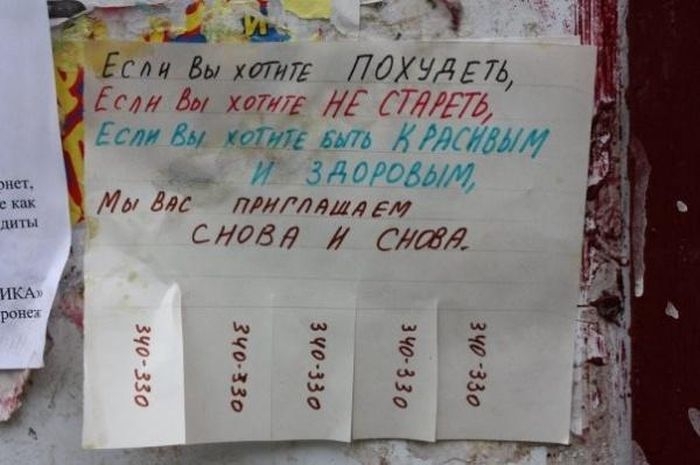 И
Если Вы хотите ПОХУДЕТЬ,
Если Вы хотите НЕ СТАРЕТЬ,
Если Вы хотите быть КРАСИВЫМ
И ЗДОРОВЫМ,
Мы Вас приглашаем
СНОВА И СНОВА.
340-330
340-330
340-330
340-330
340-330
рнет,
е как
диты
ИКА»
ронеж